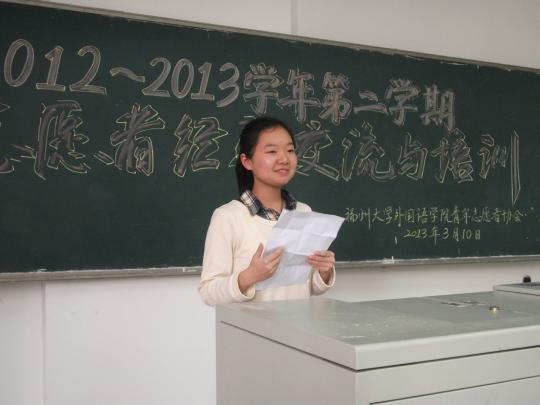 2012～2013学年第二学期
志愿者经验交流与培训
福州大学外国语学院青年志愿者协会
2013年3月10日